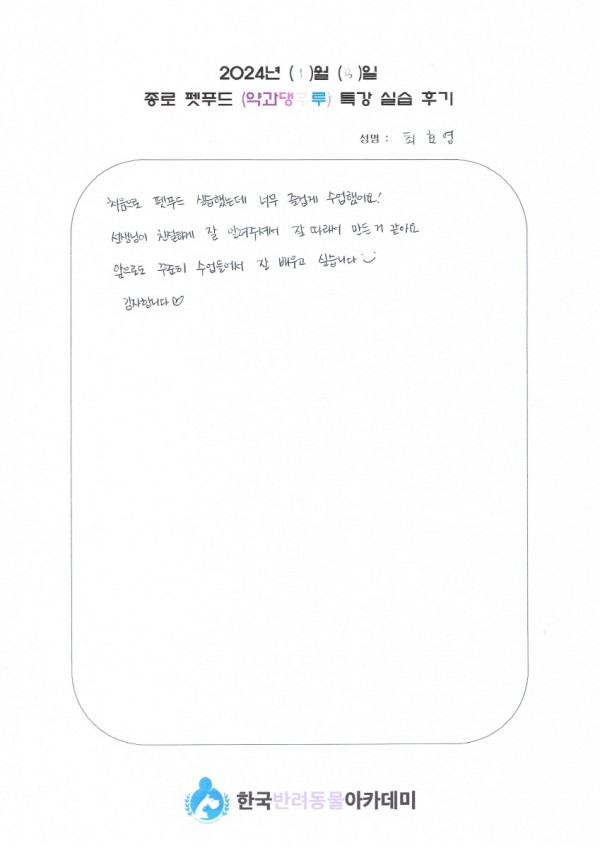 2024년 (1)월 (13)일
종로 펫푸드 (약과댕푸루) 특강 실습 후기
성명 : 최효영
처음으로 펫푸드 실습했는데 너무 즐겁게 수업했어요!
선생님이 친절하게 잘 알려주셔서 잘 따라서 만든거 같아요
앞으로도 꾸준히 수업들어서 잘 배우고 싶습니다
감사합니다♡
한국반려동물아카데미